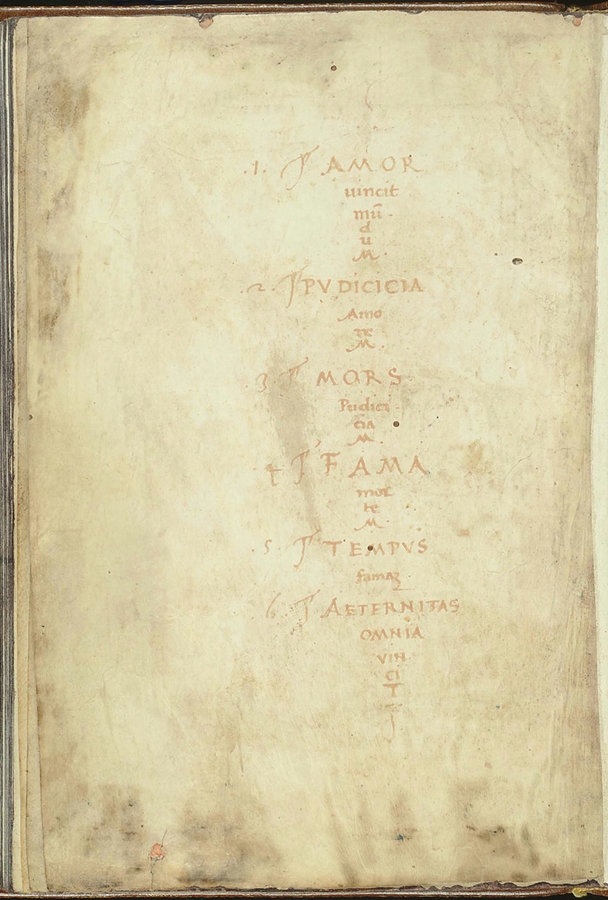 .1. AMOR
vincit
mū
d
u
M.
.2. PVDICICIA
Amo
re
M.
3 MORS
Pudici
cia
M.
4 FAMA
mor
te
M.
.5. TEMPVS
famaꝫ.
6. AETERNITAS
OMNIA
VIN
CI
T